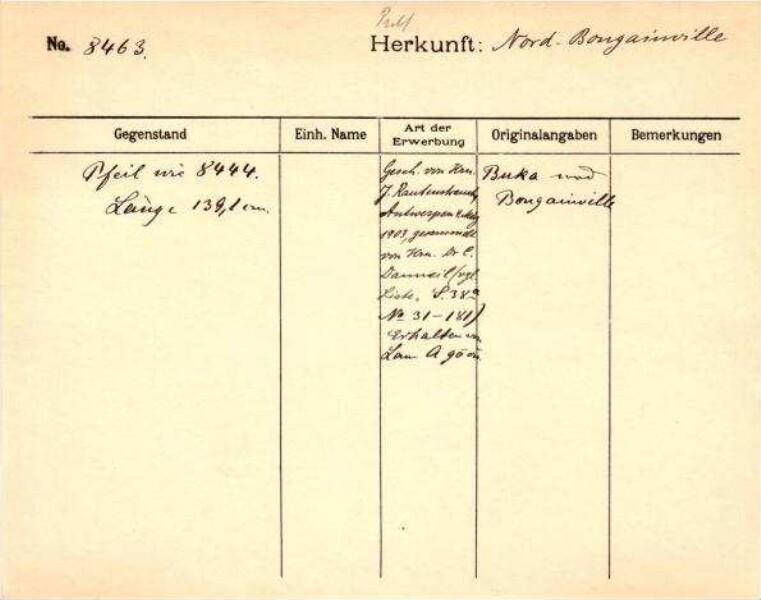 No. 8463.
Herkunft: Nord-Bougainville
Gegenstand
Einh. Name
Art der Erwerbung
Originalangaben
Bemerkungen
Pfeil wie 8444.
Länge 139,1 cm.
Gesch. von Hrn.
J. Rautenstrauch,
Antwerpen
1903, gesammelt
von Hrn. Dr C.
(vgl.
Liste, S. 38
No 31-181)
Erhalten
Buka und
Bougainville